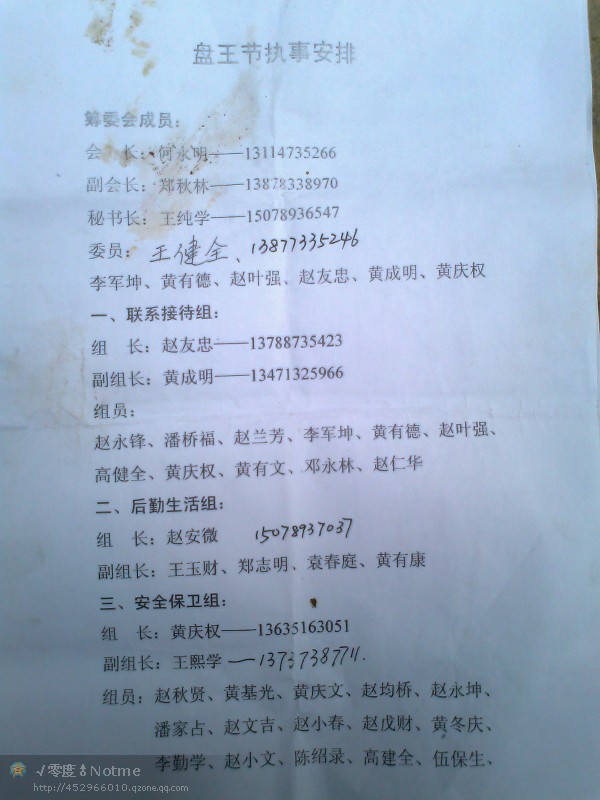 盘王节执事安排
筹委会成员：
会　长：何永明——13114735266
副会长：郑秋林——13878338970
秘书长：王纯学——15078936547
委员：王健全、13877335246
李军坤、黄有德、赵叶强、赵友忠、黄成明、黄庆权
一、联系接待组：
组　长：赵友忠——13788735423
副组长：黄成明——13471325966
组员：
赵永锋、潘桥福、赵兰芳、李军坤、黄有德、赵叶强、
高健全、黄庆权、黄有文、邓永林、赵仁华
二、后勤生活组：
组　长：赵安微　15078937037
副组长：王玉财、郑志明、袁春庭、黄有康
三、安全保卫组：
组　长：黄庆权——13635163051
副组长：王熙学—
组员：赵秋贤、黄基光、黄庆文、赵均桥、赵永坤、
潘家占、赵文吉、赵小春、赵戊财、黄冬庆、
李勤学、赵小文、陈绍录、高建全、伍保生、
√零度♂Notme
http://452966010.qzone.qq.com